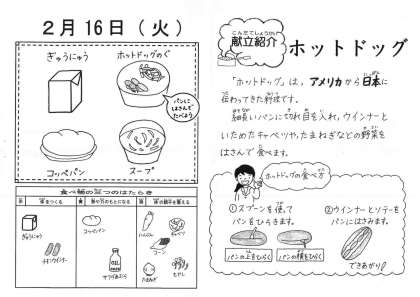 2月16日（火）
ぎゅうにゅう
ホットドッグのぐ
パンに
はさんで
たべよう
コッペパン
スープ
食べ物の三つのはたらき
赤
体をつくる
黄
熱や力のもとになる
緑
体の調子を整える
ぎゅうにゅう
チキンウインナー
コッペパン
OIL
サラダあぶら
にんじん
キャベツ
コーン
たまねぎ
もやし
こんだてしょうかい
献立紹介
ホットドッグ
「ホットドッグ」は、アメリカから日本に
伝わってきた料理です。
細長いパンに切れ目を入れ、ウインナーと
いためたキャベツや、たまねぎなどの野菜を
はさんで食べます。
ホットドッグの食べ方
①スプーンを使って
パンをひらきます。
②ウインナーとソテーを
パンにはさみます。
パンの上をひらく
パンの横をひらく
できあがり！